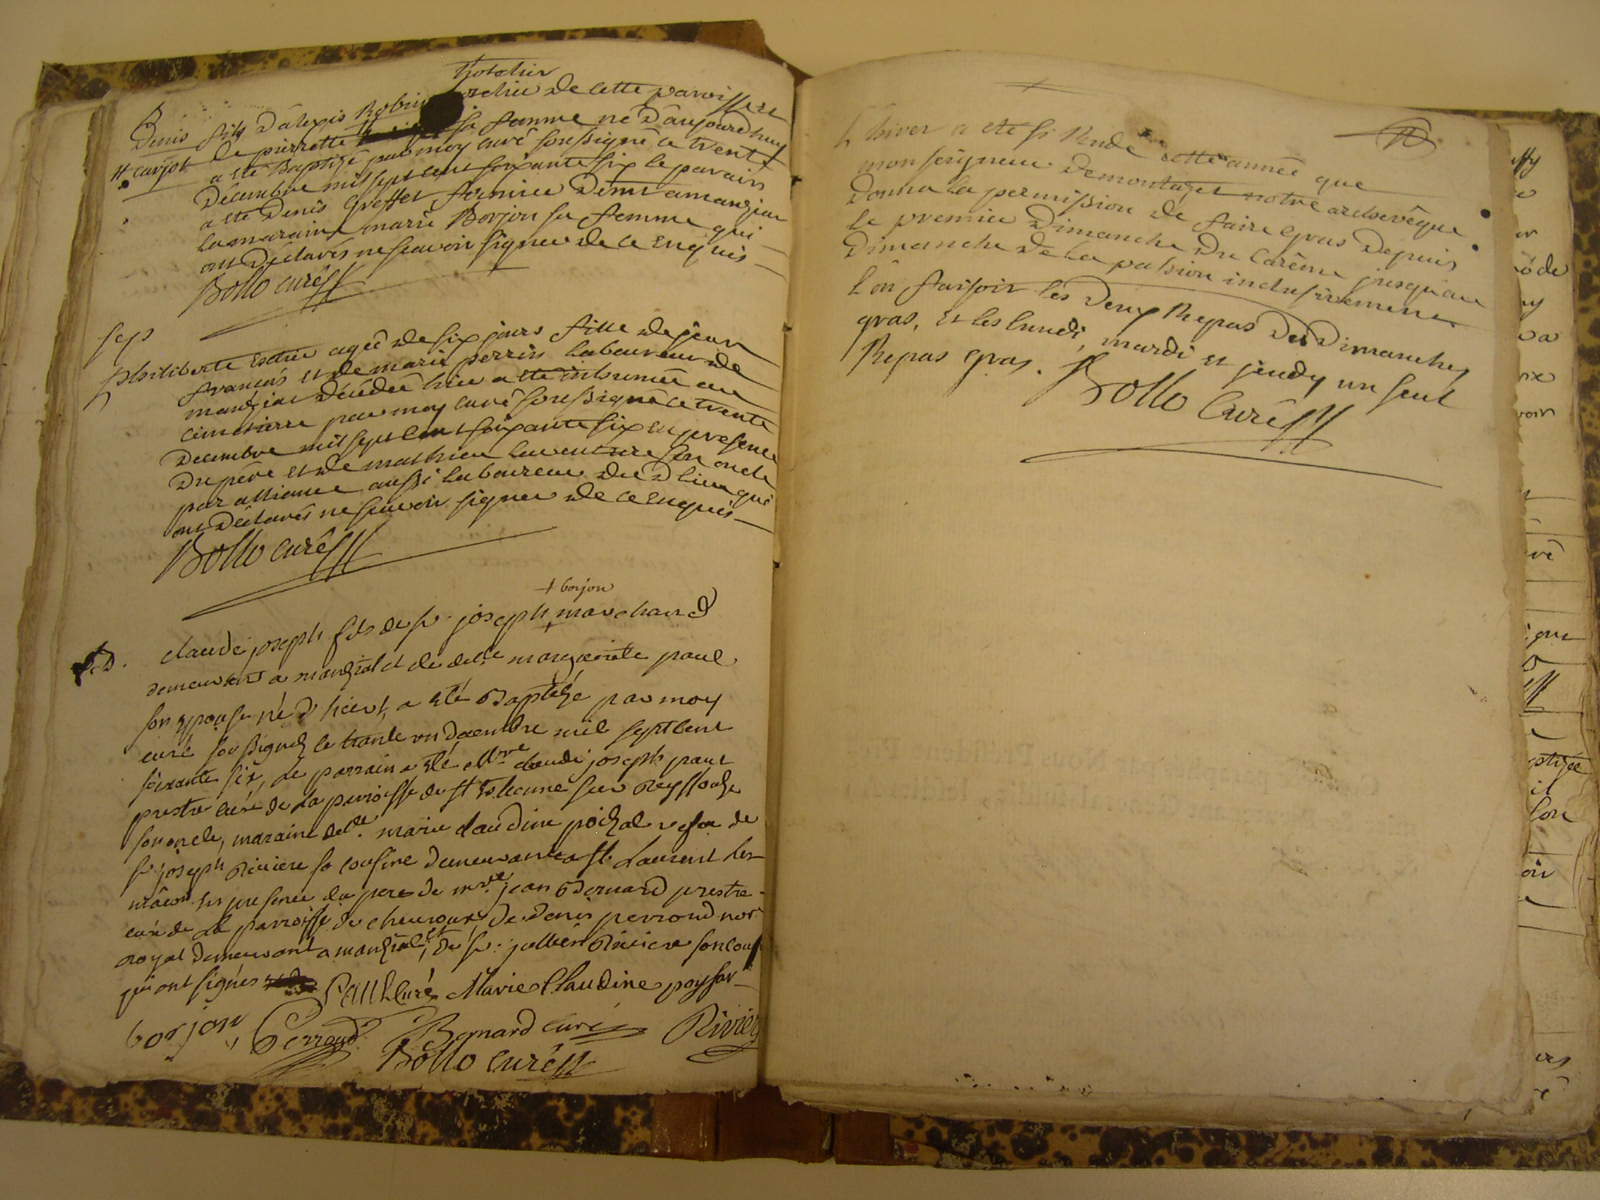 B
Denis fils d'alexis Robin de cette paroisse et
# carjot de pierrette sa femme né d'aujourdhuy
a eté Baptizé par moy curé soussigné ce trente
Decembre mil sept cent soixante six le parain
a eté Denis greffet fermier Dem.t a manziat
la maraine marie Borjon sa femme qui
ont déclarés ne scavoir signer de ce enquis
Bollo curé
sep
philiberte agée de six jours fille de jean
françois et de marie perrin laboureur de
manziat décédée hier a eté inhumée au
cimetierre par moy curé soussigné ce trente
Decembre mil sept cent soixante six en presence
Du pére et de mathieu son oncle
par alliance aussi laboureur du d. lieu qui
ont déclarés ne scavoir signer de ce enquis
Bollo curé
+ borjon
claude joseph fils de sr. joseph + marchand
demeurant a manziat et de delle margueritte paul
son epouse né d'hier, a eté Baptizé par moy
curé soussigné le trante un decembre mil sept cent
soixante six, le parrain a eté Mre claude joseph paul
prestre curé de la paroisse de st Estienne sur Reyssouze
son oncle, maraine delle. marie claudine de
sr. joseph Riviere sa cousine demeurante a st. Laurent les
mâcon en presence du pere de mre jean Bernard prestre
curé de la parroisse de chevroux, de denis perroud not.
royal demeurant a manziat, et de sr. jullien Riviere son cous
qui ont signés
Paul Curé Marie Claudine
borjon Perroud Bernard curé Rivier
Bollo curé
L'hiver a eté si Rude cette année que
monseigneur Demontazet notre archevêque
donna la permission de faire gras depuis
le premier Dimanche Du Carême jusqu'au
Dimanche de la passion inclusivement
l'on faisoit les deux Repas des Dimanches
gras, et les lundi, mardi et jeudy un seul
Repas gras. Bollo Curé